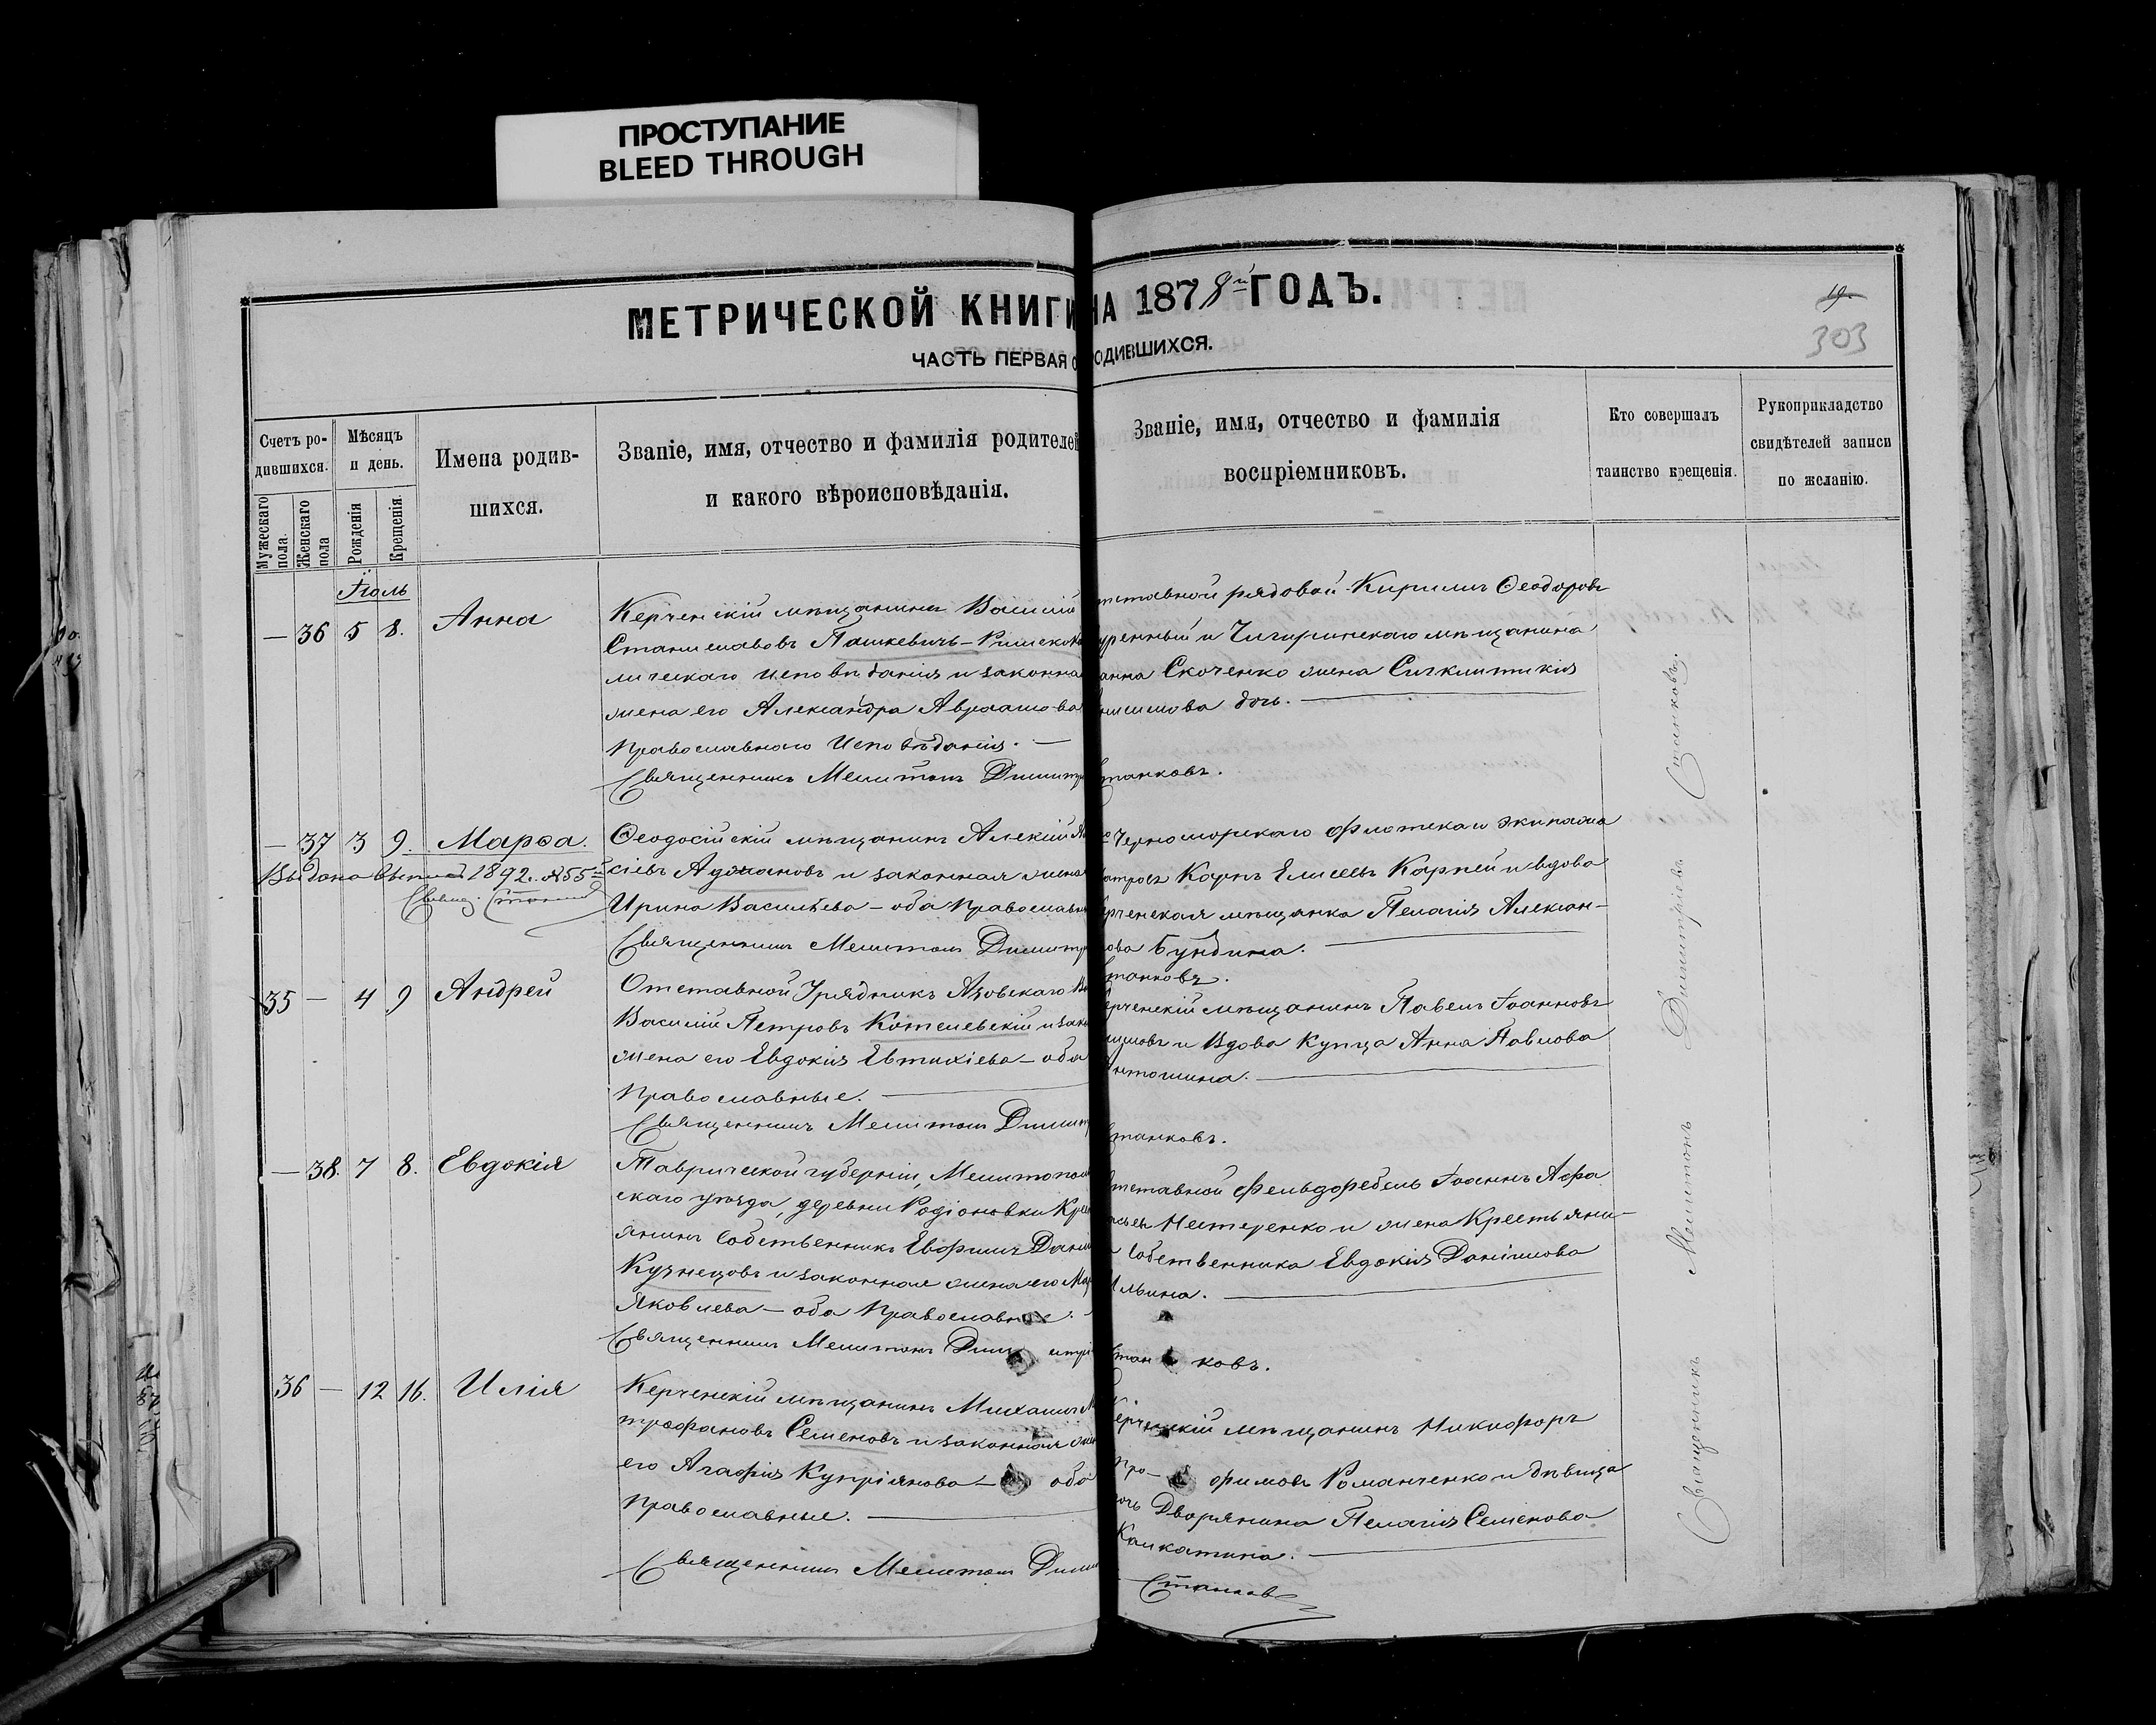 ПРОСТУПАНИЕ
BLEED THROUGH
МЕТРИЧЕСКОЙ КНИГИ НА 1878й ГОДЪ.
ЧАСТЬ ПЕРВАЯ О РОДИВШИХСЯ.
19.
303
Счетъ ро-
дившихся.
Мужескаго пола.
Женскаго пола
Мѣсяцъ
и день.
Рожденія
Крещенія
Имена родив-
шихся.
Званіе, имя, отчество и фамилія родителей
и какого вѣроисповѣданія.
Званіе, имя, отчество и фамилія
воспріемниковъ.
Кто совершалъ
таинство крещенія.
Рукоприкладство
свидѣтелей записи
по желанію.
Іюль
— 36 5 8. Анна
Керченскій мѣщанинъ Василій
Станиславовъ Пашкевичъ - Римско
лическаго исповѣданія и законная
жена его Александра Авраамова
Православнаго Исповѣданія. —
Священникъ Мелитонъ Димитрі
тставной рядовой Кириллъ Ѳеодоровъ
уренный и Чигиринскаго мѣщанина
анна Скоченко жена Синклитикія
дочь. —
Станковъ.
— 37 3 9. Марѳа.
Выдана 1892. № 55
Ѳеодосійскій мѣщанинъ Алексій
сіевъ и законная жена
Ирина Васильева - оба Православн
Священникъ Мелитонъ Димитр
Черноморскаго флотскаго экипажа
матросъ Карпъ Елисеевъ Карпей и вдова
ерченская мѣщанка Пелагія Алексан-
ова Бундина. —
Станковъ.
35 — 4 9 Андрей
Отставной Урядникъ Азовскаго
Василій Петровъ Котелевскій и зак
жена его Евдокія Евтихіева - оба
Православные. —
Священникъ Мелитонъ Димит
ерченскій мѣщанинъ Павелъ Іоанновъ
и Вдова Купца Анна Павлова
нтошина. —
Станковъ.
— 38. 7 8. Евдокія
Таврической губерніи, Мелитопол
скаго уѣзда, деревни Родіоновки Крес
янинъ Собственникъ Евфимъ Дани
Кузнецовъ и законная жена его Ма
Яковлева - оба Православные. -
Священникъ Мелитонъ Дим итрі
тставной Фельдфебель Іоаннъ Афа
сьевъ Нестеренко и жена Крестьяни-
Собственника Евдокія Даніилова
Ильина. —
Стан ковъ.
36 — 12 16. Илія
Керченскій мѣщанинъ Михаилъ М
трофановъ Семеновъ и законная жен
его Агафія Купріянова - оба
Православные. —
Священникъ Мелитонъ Дими
Керченскій мѣщанинъ Никифоръ
Про- фимовъ Романченко и дѣвица
дочь Дворянина Пелагія Семенова
Калкатина. —
Станковъ
Священникъ Мелитонъ Димитріевъ Станковъ.